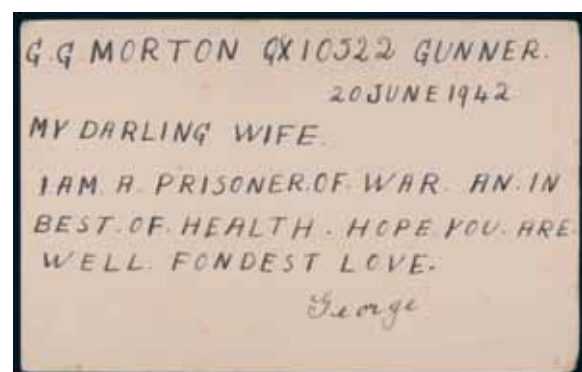 G.G MORTON QX10522 GUNNER.
20 JUNE 1942
MY DARLING WIFE.
I.AM. A. PRISONER.OF. WAR. AN. IN
BEST. OF. HEALTH. HOPE. YOU. ARE.
WELL. FONDEST LOVE.
George